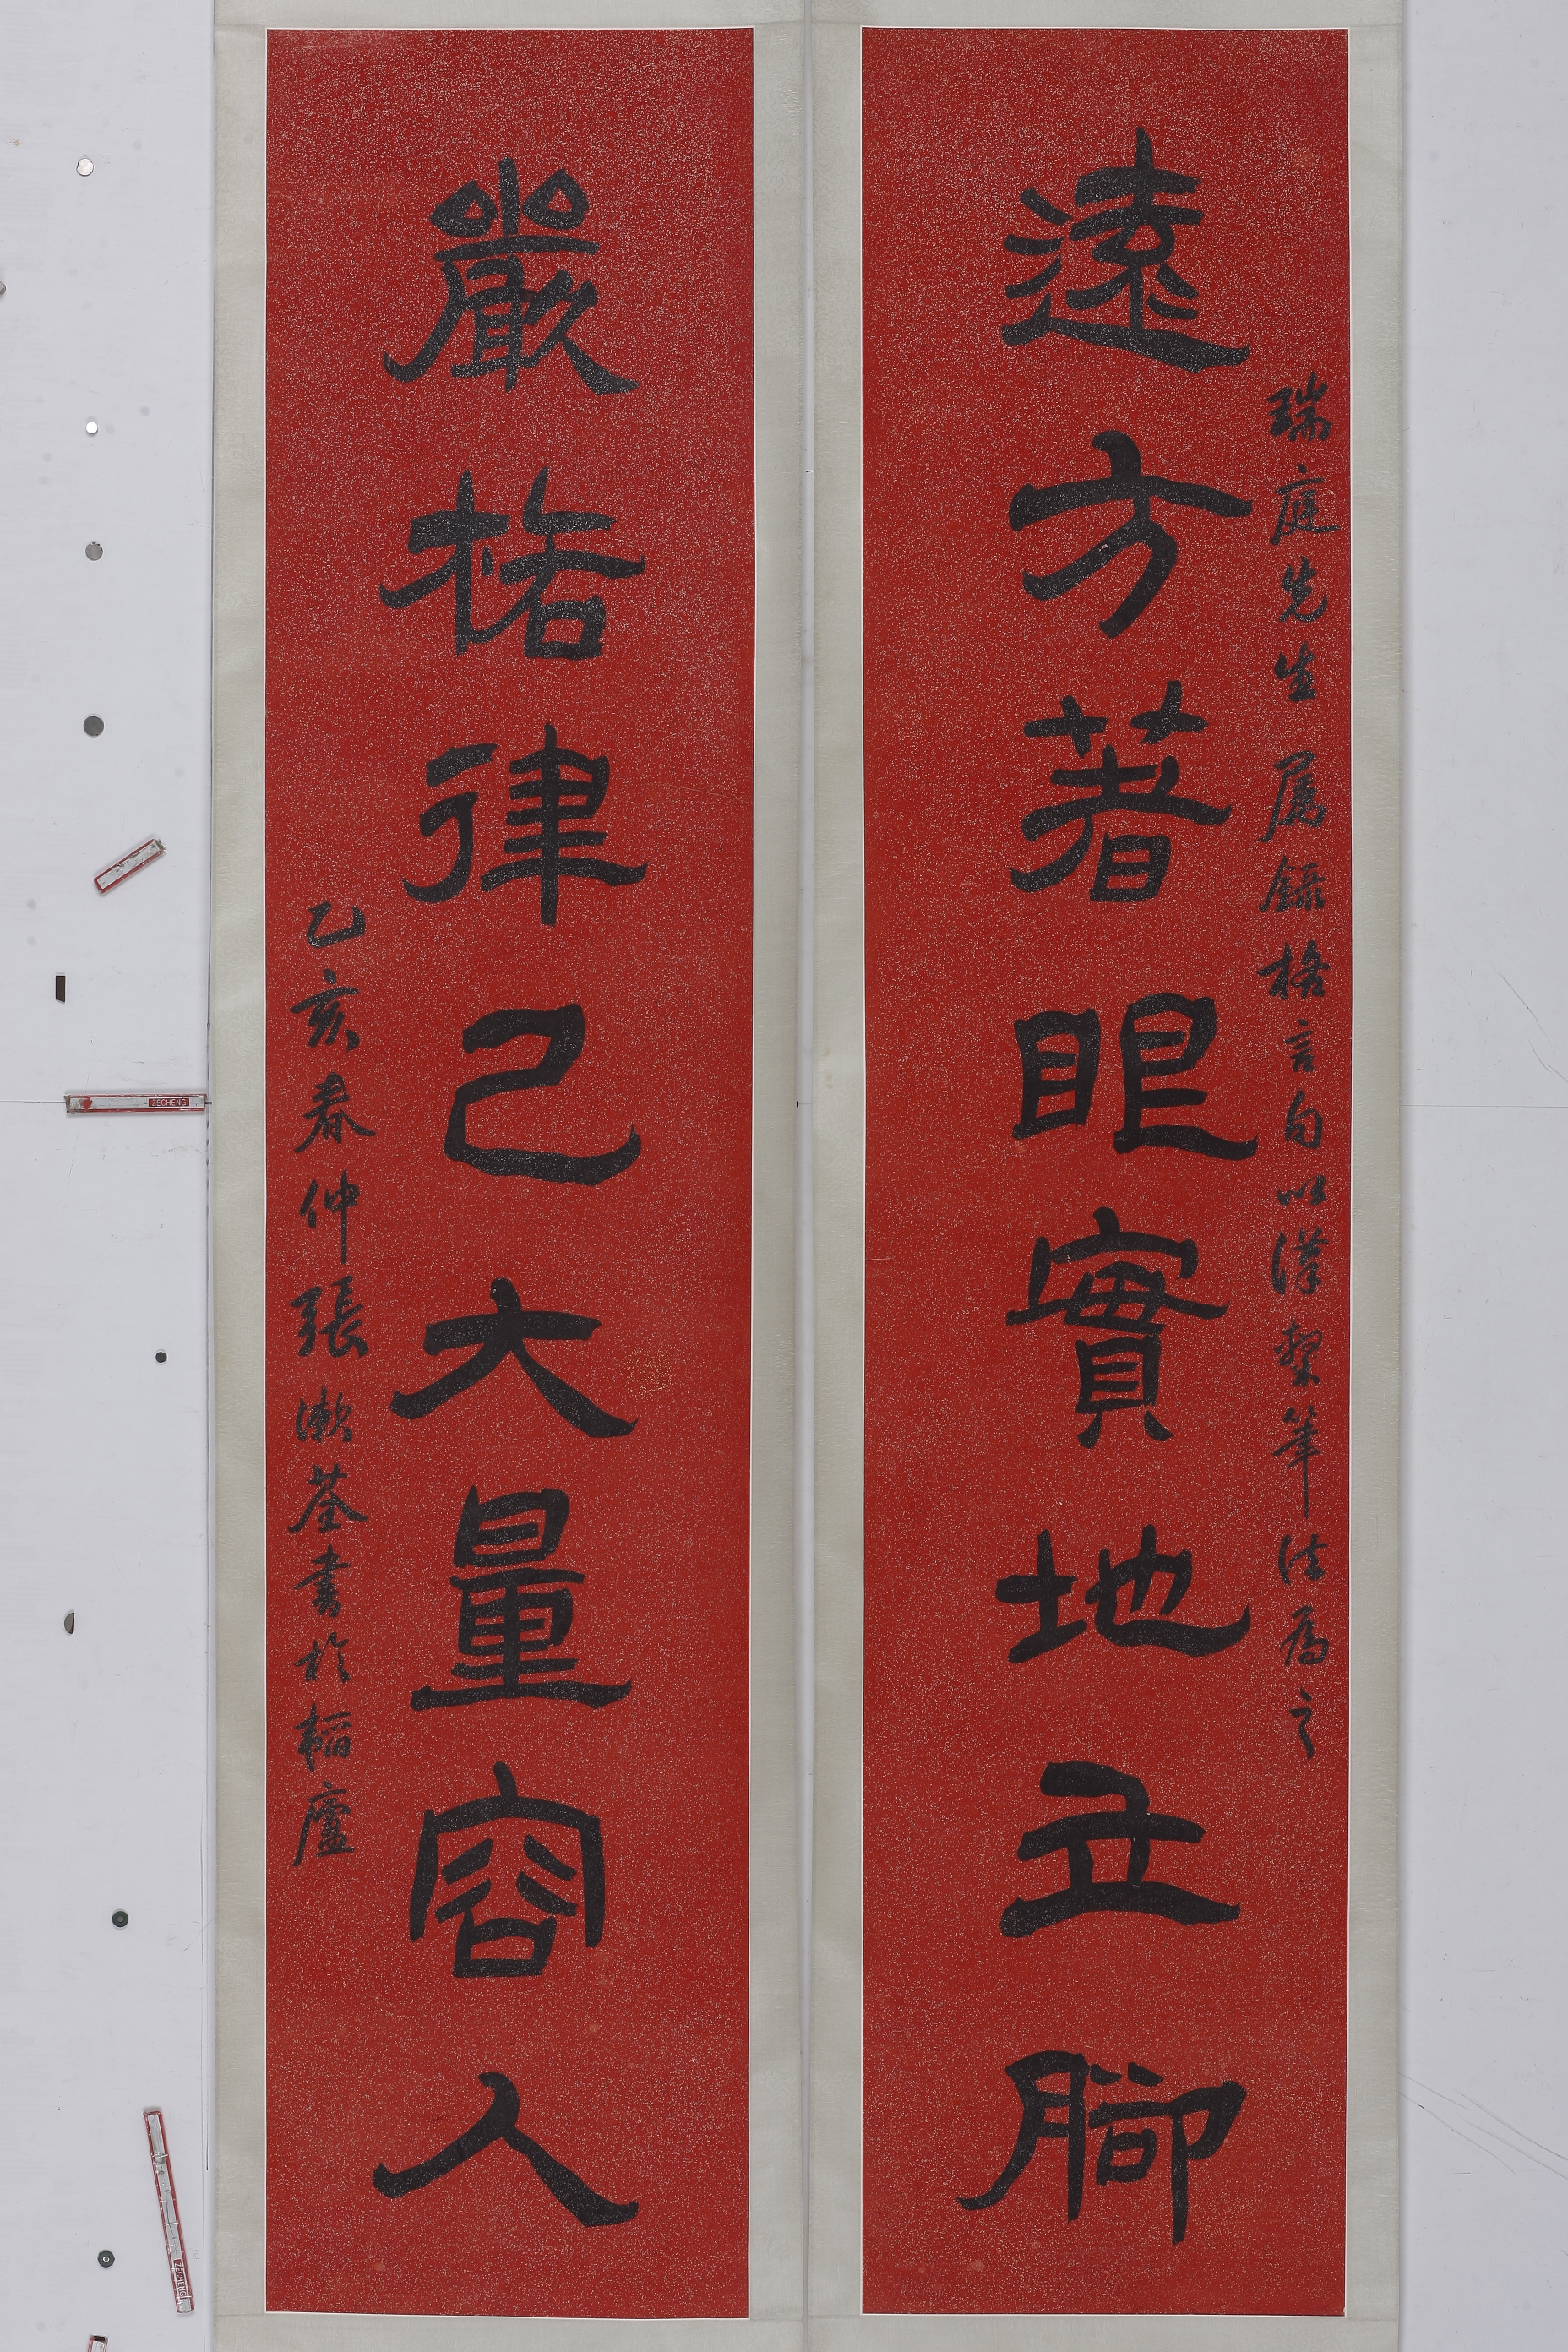 遠方著眼實地立腳
瑞庭先生属錄格言句以漢筆法為之
嚴格律己大量容人
乙亥春仲張漱荃書於廬
ZECHENG
ZECHENG